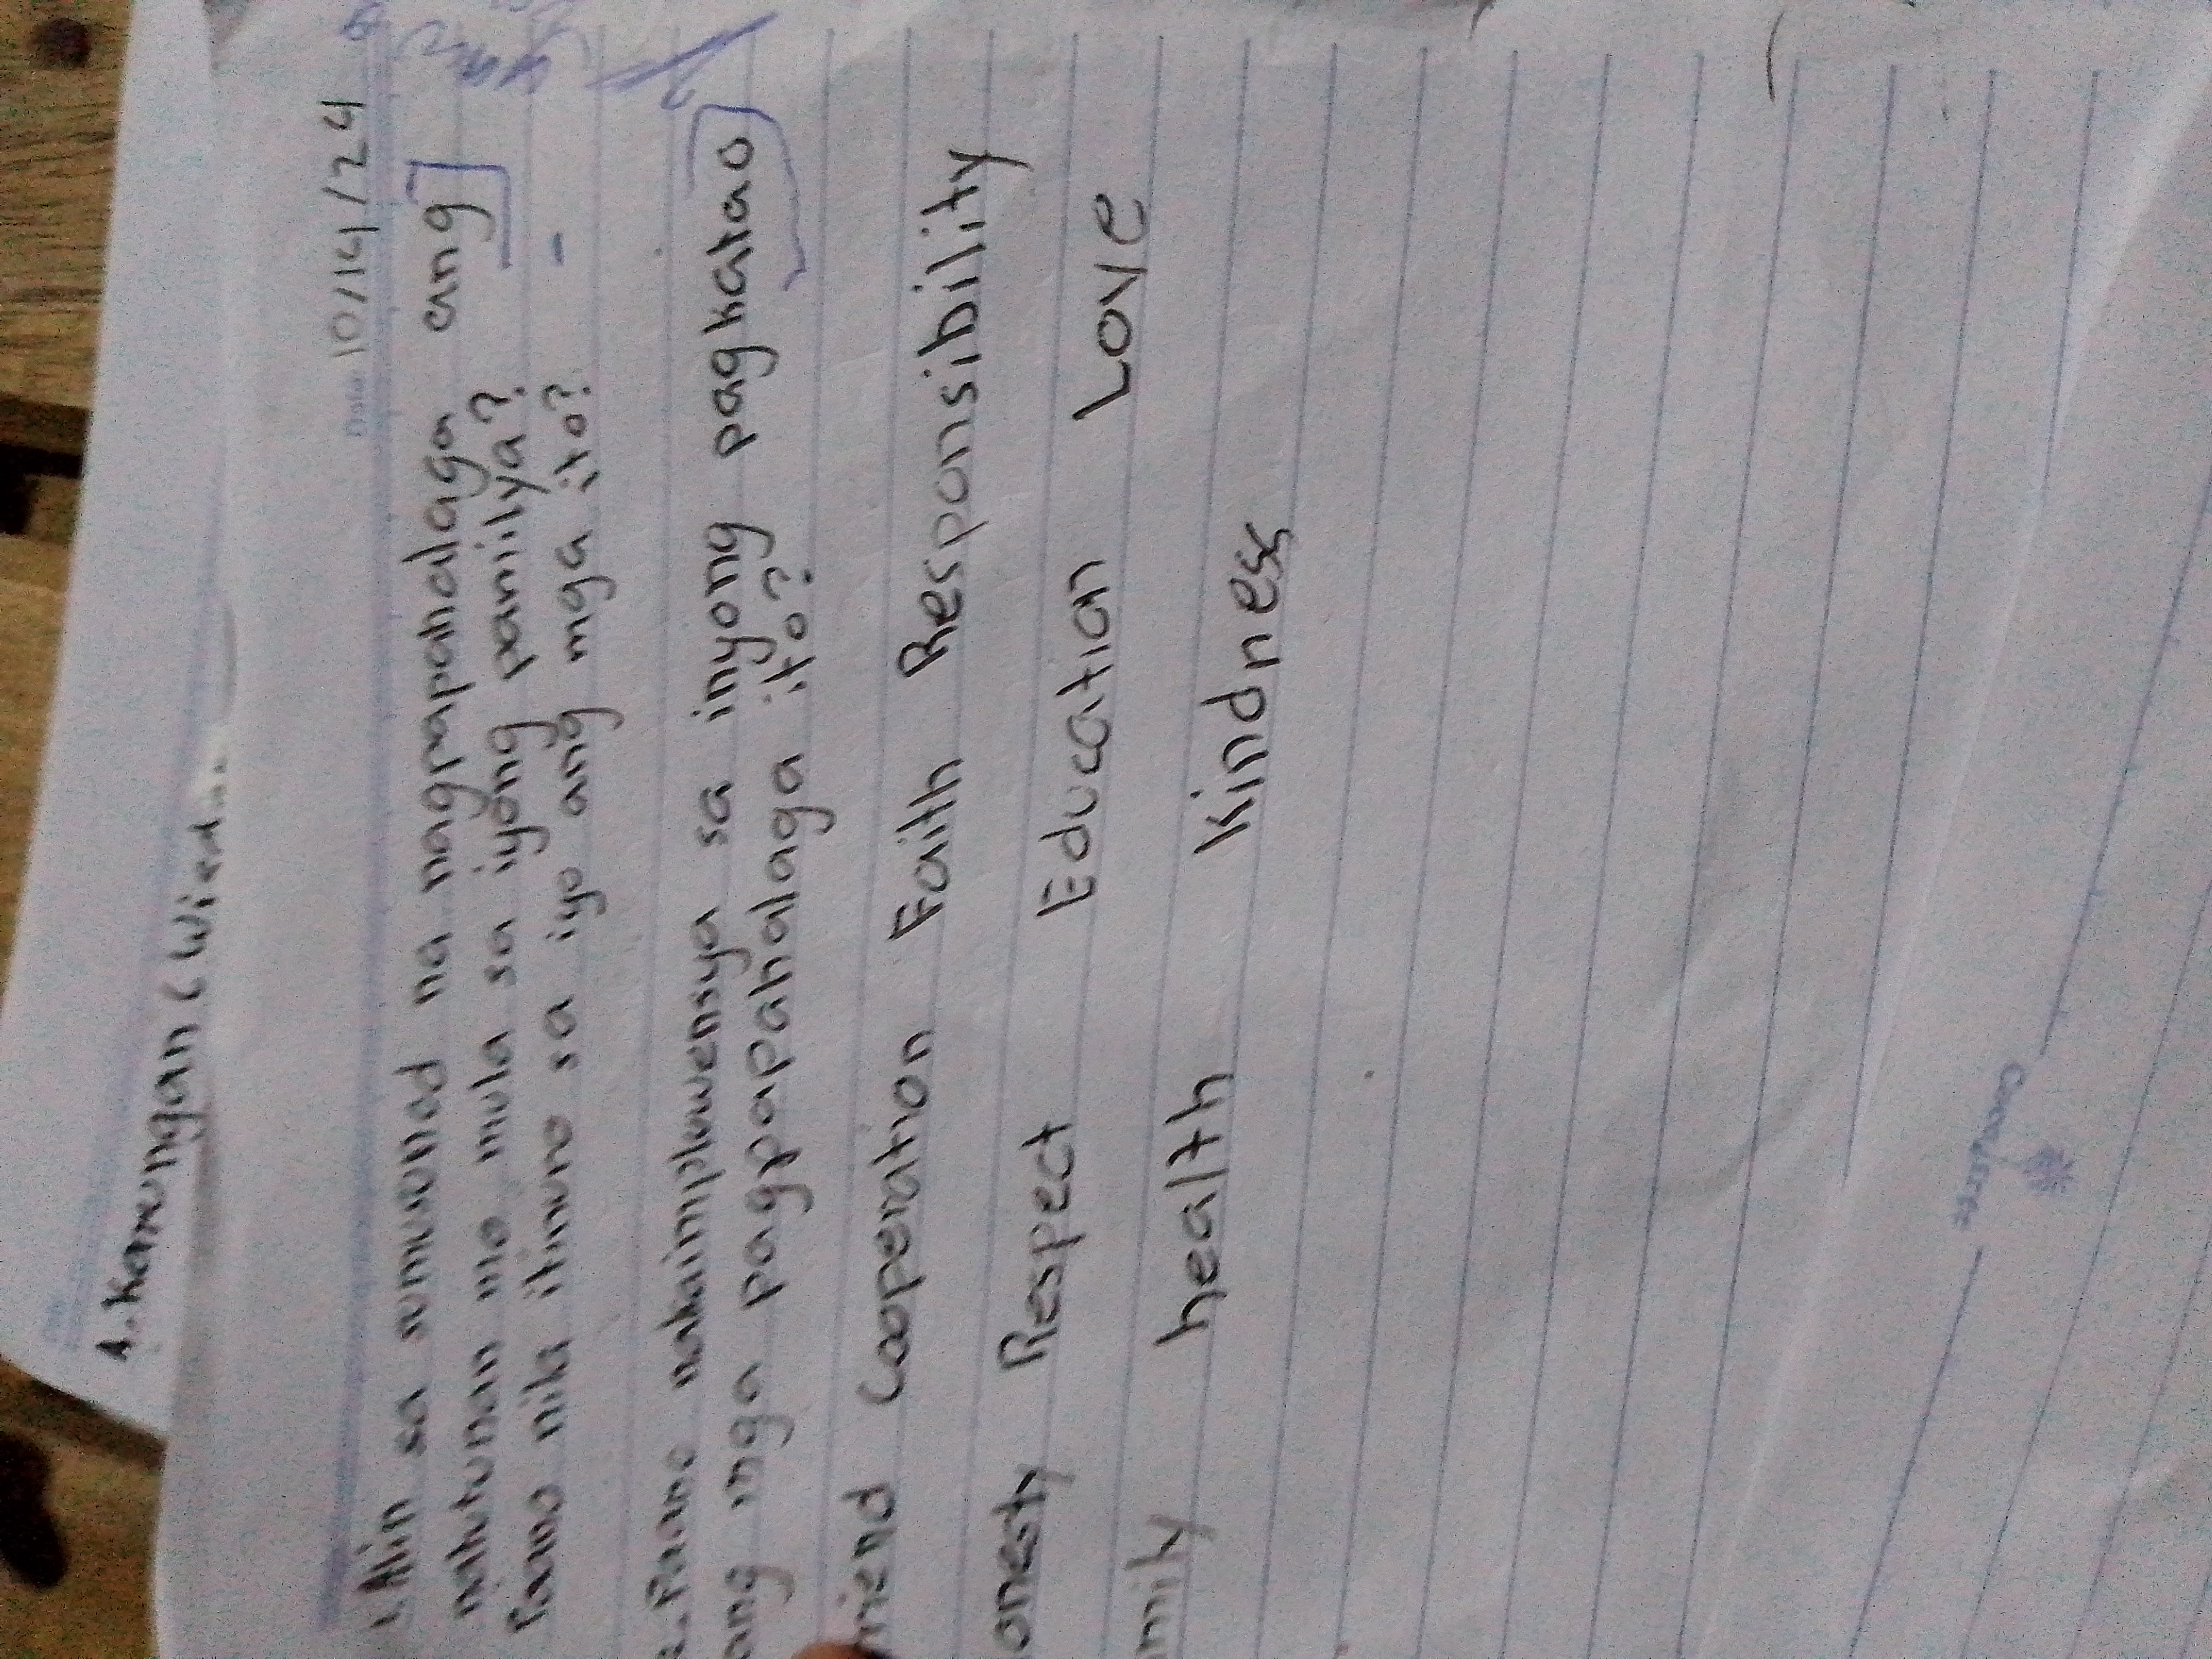 4. Karunungan (
Date: 10/14/24
1. Alin sa sumusunod na nagpapahalaga ang
natutunan mo mula sa iyong pamilya?
Paano nila itinuro sa iyo ang mga ito?
2. Paano nakaimpluwensya sa inyong pagkatao
ang mga pagpapahalaga ito?
riend Cooperation Faith Responsibility
onesty Respect Education Love
mily health Kindness